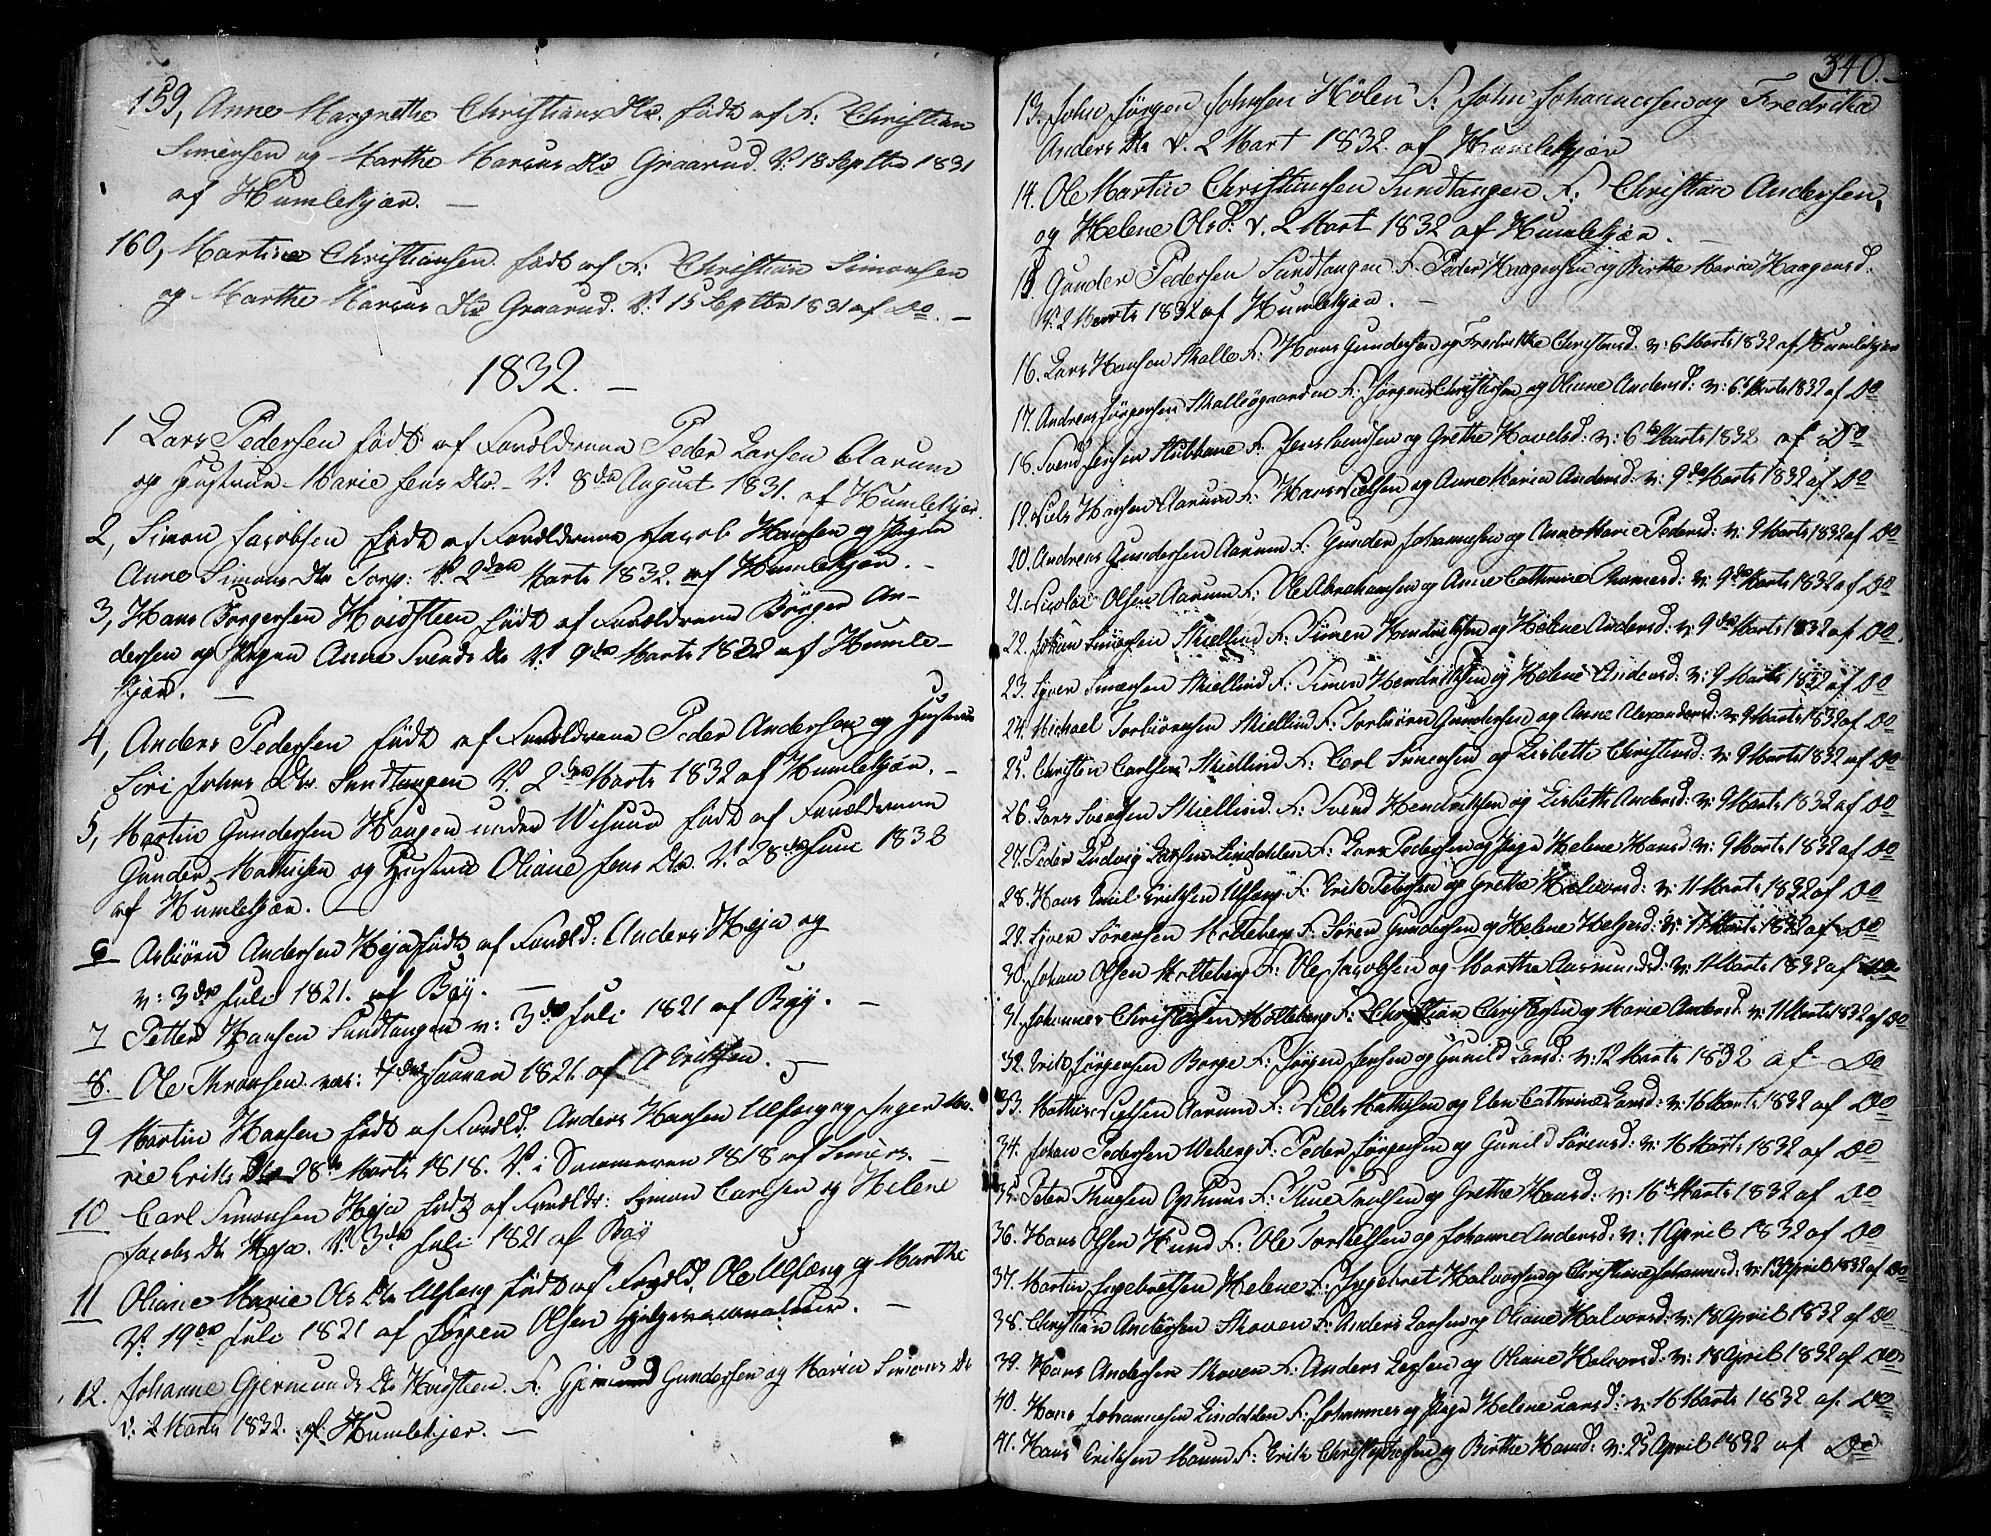 159, Anne Margrethe Christians Dtr. født af F: Christian
Simensen og Marthe Marcus Dtr Graarud. V. 13 Septbr 1831
af Humlekjær. —
160, Martin Christiansen. født af F: Christian Simonsen
og Marthe Marcus Dtr Graarud. V. 15 Septbr 1831 af Do. —
1832. —
1 Lars Pedersen født af Forældrene Peder Larsen Aarum
og Hustrue Marie Jens Dtr. V. 8de August 1831. af Humlekjær.
2, Simon Jacobsen født af Forældrene Jacob Hansen og Pigen
Anne Simons Dtr Torp: V. 2den Marts 1832. af Humlekjær. —
3, Hans Børgersen Hvidsteen født af Forældrene Børger An-
dersen og Pigen Anne Svends Dtr V. 9de Marts 1832 af Humle-
kjær. —
4, Anders Pedersen født af Forældrene Peder Andersen og Hustrue
Siri Johns Dtr. Sundtangen V. 2den Marts 1832 af Humlekjær. —
5, Martin Gundersen Haugen under født af Forældrene
Gunder Mathisen og Hustrue Oliane Jens Dtr. V. 28de Juni 1832
af Humlekjær. —
6 Asbiørn Andersen Heja født af Foræld: Anders Heja og
v: 3de Juli 1821. af Bøy. —
7 Petter Hansen Sundtangen v: 3de Juli 1821 af Bøy. —
8. Ole Thronsen. vac: 4de Januar 1821. af A Eriksen. —
9 Martin Hansen født af Foræld. Anders Hansen Ulfeng og Inger Ma-
rie Eriks Dtr 28de Marts 1818. V. i Sommeren 1818 af Simers. —
10 Carl Simonsen Heja født af Forældr: Simon Carlsen og Helene
Jacobs Dtr Heja. V. 3de Juli 1821 af Bøy
11 Oliane Marie Ols Dtr Ulfeng født af Foræld. Ole Ulfeng og Marthe
V. 19de Juli 1821 af Jørgen Olsen Hjelpevaccinateur. —
12. Johanne Gjermunds Dtr Hvidsteen. F: Gjermund Gundersen og Maria Simons Dr
v: 2 Marts 1832. af Humlekjær. —
340. —
13. John Jørgen Johnsen Hølen F: John Johannessen og Fredrika
Anders Dtr V. 2 Mart 1832. af Humlekjær
14. Ole Martin Christiansen Sundtangen F: Christian Andersen,
og Helene Olsd: V. 2 Mart 1832 af Humlekjær. —
15. Gunder Pedersen Sundtangen F: Peder Haagensen og Birthe Maria Haagensd:
V. 2 Marts 1832 af Humlekjær. —
16. Lars Hansen Skalle F: Hans Gundersen og Fredrikke Christensd: v: 6 Marts 1832 af Humlekjær
17. Andreas Jørgensen F: Jørgen Christensen og Oliane Andersd: v: 6 Marts 1832 af Do
18. Svend Jensen Stubbane F: Jens Svendsen og Grethe Havelsd: v: 6te Marts 1832 af Do
19. Niels Hansen Aarum F: Hans Nielsen og Anne Maria Andersd: v: 9de Marts 1832 af Do
20. Andreas Gundersen Aarum F: Gunder Johannesen og Anne Marie Pedersd: v: 9 Marts 1832 af Do
21. Nicolai Olsen Aarum F: Ole Abrahamsen og Anne Cathrine v: 9de Marts 1832 af Do
22. Johan Simensen Skiellind F: Simen Hendriksen og Helene Andersd: v: 9de Marts 1832 af Do.
23. Syver Simensen Skiellind F: Simen Hendriksen og Helene Andersd: v: 9 Marts 1832 af Do
24. Michael Torbiørnsen Skiellind F: Torbiørn Gundersen og Anne Alexandersd: v: 9 Marts 1832 af Do
25. Christen Carlsen Skiellind F: Carl Simensen og Lisbeth Christensd: v: 9 Marts 1832 af Do
26. Lars Svensen Skiellind. F: Svend Hendriksen og Lisbeth Andersd: v: 9 Marts 1832 af Do
27. Peder Ludvig Larsen Lindahlen F: Lars Pedersen og Pige Helene Hansd: v: 9 Marts 1832 af Do
28. Hans Emil Eriksen Ulfeng F: Erik Petersen og Grethe Halvorsd: v: 11 Marts 1832 af Do
29. Syver Sørensen Holteberg F: Søren Gundersen og Helene Helgesd: v: 11 Marts 1832 af Do
30. Johan Olsen Holteberg F: Ole Jacobsen og Marthe Aasmundsd: v: 11 Marts 1832 af Do
31. Johannes Christensen Holteberg F: Christian Christensen og Marie Andersd: v: 11 Marts 1832 af Do
32. Erik Jørgensen Borge F: Jørgen Jensen og Gunild Larsd: v: 12 Marts 1832 af Do
33. Mathis Nielsen Aarum F: Niels Mathisen og Elen Cathrine Larsd: v: 16 Marts 1832 af Do
34. Johan Pedersen Weberg F: Peder Jørgensen og Gunild Sørensd: v: 16 Marts 1832 af Do
35. Peter Thuesen F: Thue Truelsen og Grethe Hansd: v: 16de Marts 1832 af Do
36. Hans Olsen Hund F: Ole Torkelsen og Johanne Andersd: v: 1 April 1832 af Do
37. Martin Ingebretsen Helene F: Ingebret Halvorsen og Christiane Johannesd: v: 13 April 1832 af Do
38. Christian Andersen Skoven F: Anders Larsen og Oliane Halvorsd: v: 18 April 1832 af Do
39. Hans Andersen Skoven F: Anders Larsen og Oliane Halvorsd: v: 18 April 1832 af Do
40. Hans Johannesen Lindahlen F: Johannes og Pige Helene Larsd: v: 16 Marts 1832 af Do
41. Hans Eriksen Haum F: Erik Christophersen og Birthe Hansd: v: 25 April 1832 af Do